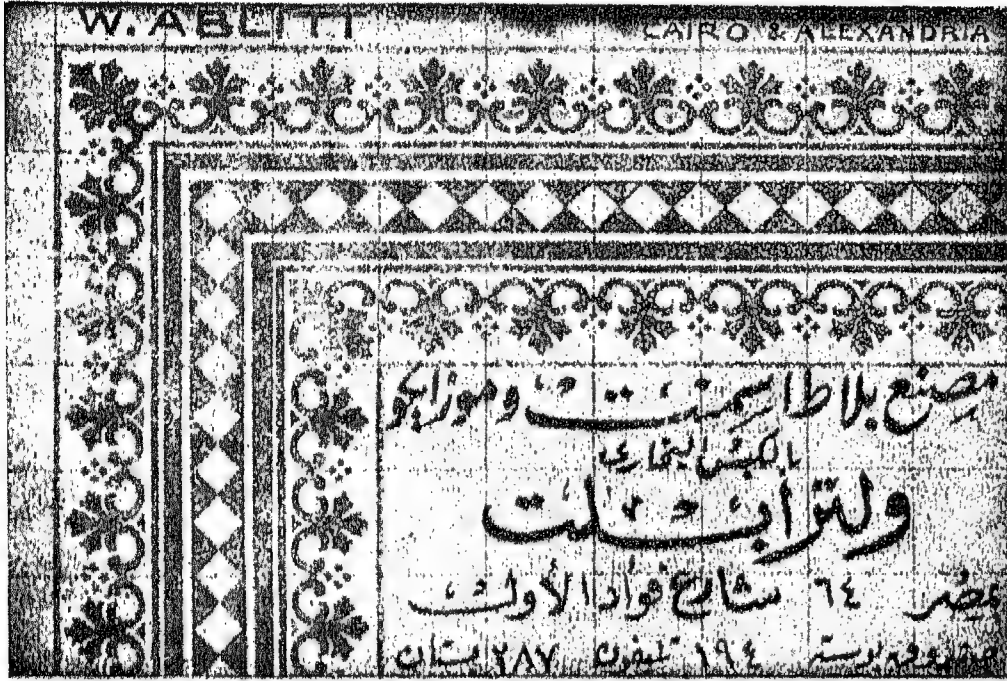 W. ABLITT
CAIRO & ALEXANDRIA
مصنع بلاط اسمنت وموزايكو
بالكبس البخارى
ولتر ابلت
مصر ٦٤ شارع فؤاد الأول
صندوق بوسته ١٩٤ تليفون ٢٨٧ بستان